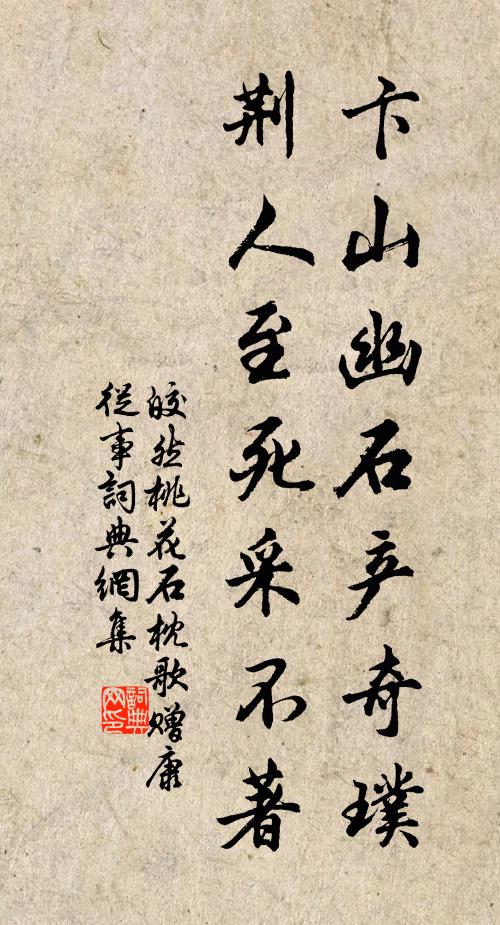 卞山幽石产奇璞
荆人至死采不著
皎然桃花石枕歌赠康
從事詞典網集
詞典网印